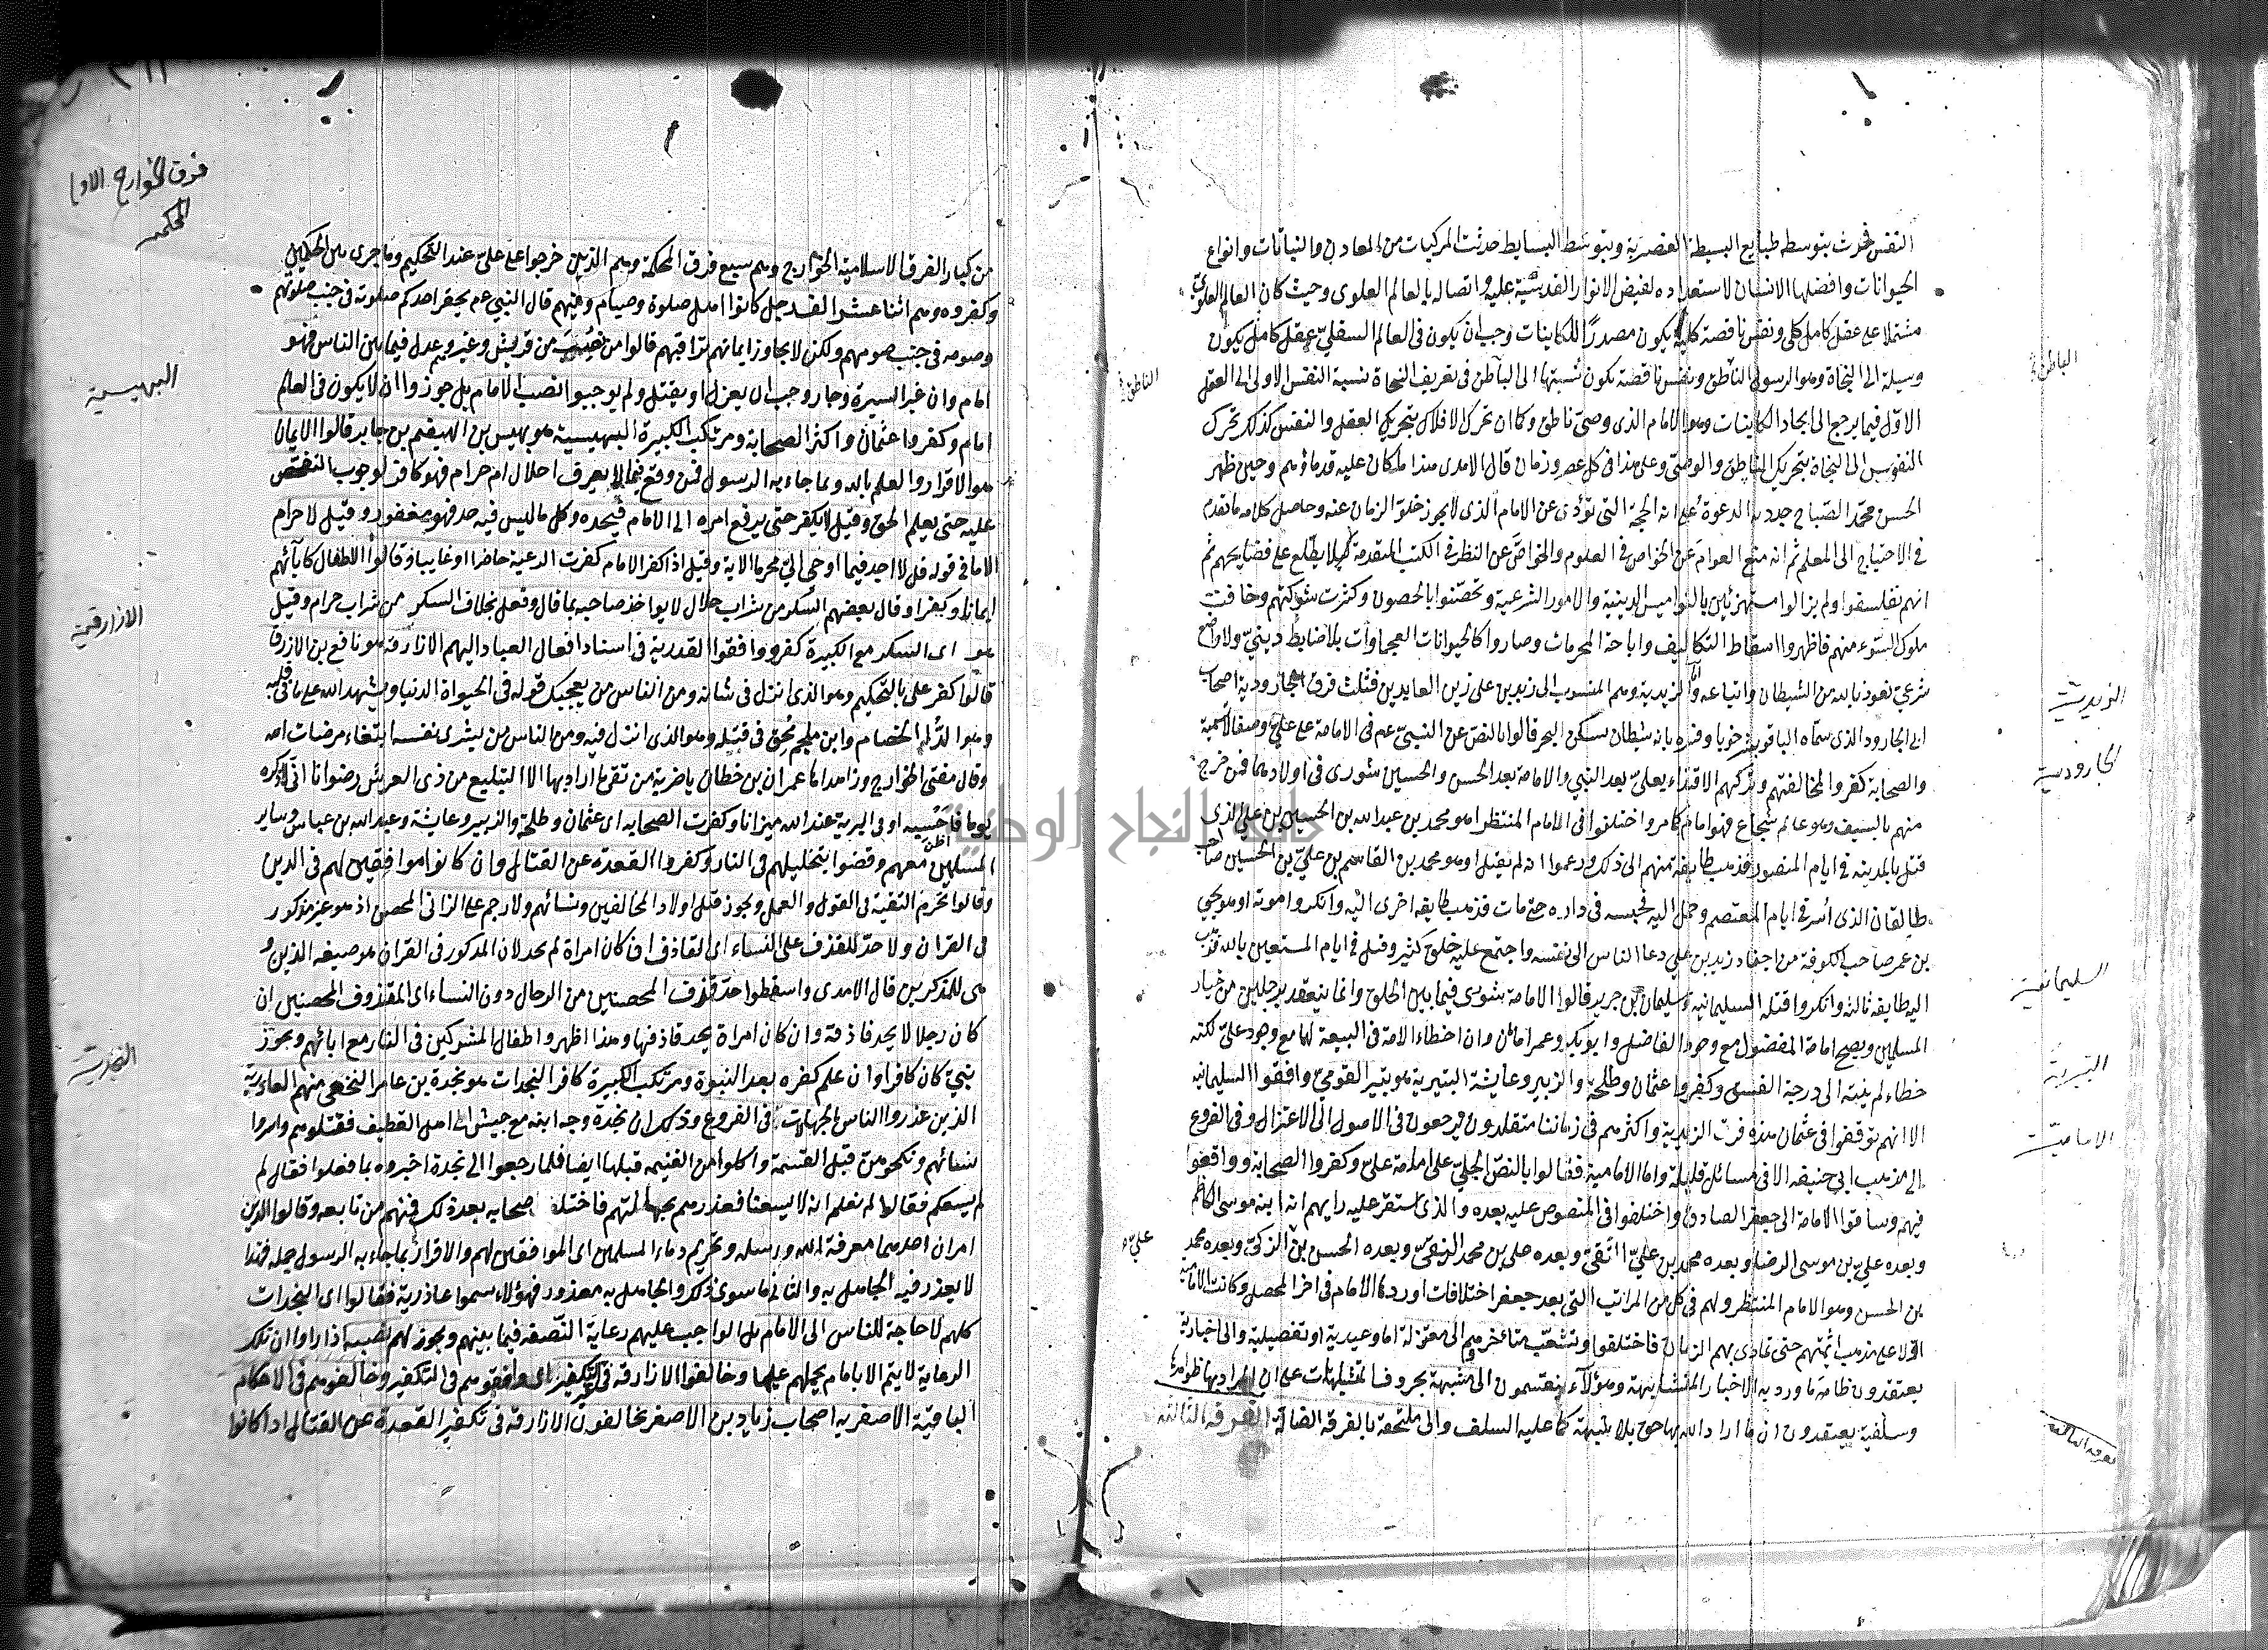 النفس فحدثت بتوسطه طبايع البسيطة العنصرية وبتوسط البسايط حدثت المركبات من المعادن والنباتات وانواع
الحيوانات وافضلها الانسان لاستعداده لفيض الانوار القدسية عليه واتصاله بالعالم العلوي وحيث كان العالم العلوي
مشتملا على عقل كامل كلي ونفس ناقصة كلية يكون مصدرا للكاينات وجب ان يكون في العالم السفلي عقل كامل يكون
وسيلة الى النجاة وهو الرسول الناطق ونفس ناقصة تكون نسبتها الى الناطق في تعريف النجاة نسبة النفس الاولى الى العقل
الاول فيما يرجع الى ايجاد الكاينات وهو الامام الذي وصي ناطق وكما ان تحرك الافلاك بتحريك العقل والنفس كذلك تحرك
النفوس الى النجاة بتحريك الناطق والوصي وعلى هذا في كل عصر وزمان قال الامدي هذا ما كان عليه قدماؤهم وحين ظهر
الحسن محمد الصباح جدد الدعوة على انه الحجة التي تؤدى عن الامام الذي لا يجوز خلو الزمان عنه وحاصل كلامه ما تقدم
في الاحتياج الى المعلم ثم انه منع العوام عن الخوض في العلوم والخواص عن النظر في الكتب المتقدمة كيلا يطلع على فضايحهم ثم
انهم تفلسفوا ولم يزالوا مستهزئين بالنواميس الدينية والامور الشرعية وتحصنوا بالحصون وكثرت شوكتهم وخافت
ملوك السوء منهم فاظهروا اسقاط التكاليف واباحة المحرمات وصاروا كالحيوانات العجماوات بلا ضابط ديني ولا وازع
شرعي نعوذ بالله من الشيطان واتباعه واما الزيدية وهم المنسوب الى زيد بن علي زين العابدين فثلث فرق الجارودية اصحاب
ابي الجارود الذي سماه الباقر سرخوبا وفسره بانه شيطان سكن البحر قالوا بالنص عن النبي عم في الامامة على علي وصفا لا تسمية
والصحابة كفروا لمخالفتهم وتركهم الاقتداء بعلي بعد النبي والامامة بعد الحسن والحسين شورى في اولادهما فمن خرج
منهم بالسيف وهو عالم شجاع فهو امام كامر واختلفوا في الامام المنتظر اهو محمد بن عبد الله بن الحسين بن علي الذي
قتل بالمدينة في ايام المنصور فذهب طايفة منهم الى ذلك وزعموا انه لم يقتل او هو محمد بن القاسم بن علي بن الحسين صاحب
طالقان الذي أسر في ايام المعتصم وحمل اليه فحبسه في داره حتى مات فذهب طايفة اخرى اليه وانكروا موته او هو يحيى
بن عمر صاحب الكوفة من احفاد زيد بن علي دعا الناس الى نفسه واجتمع عليه خلق كثير وقتل في ايام المستعين بالله فذهب
اليه طايفة ثالثة وانكروا قتله السليمانية سليمان بن جرير قالوا الامامة شورى فيما بين الخلق وانما ينعقد برجلين من خيار
المسلمين ويصح امامة المفضول مع وجود الفاضل وابو بكر وعمر امامان وان اخطاء الامة في البيعة لهما مع وجود علي لكنه
خطاء لم ينته الى درجة الفسق وكفروا عثمان وطلحة والزبير وعايشة البتيرية هو بتير القومي وافقوا السليمانية
الا انهم توقفوا في عثمان هذه فرق الزيدية واكثرهم في زماننا مقلدون يرجعون في الاصول الى الاعتزال وفي الفروع
الى مذهب ابي حنيفة الا في مسائل قليلة واما الامامية فقالوا بالنص الجلي على امامة علي وكفروا الصحابة ووقعوا
فيهم وساقوا الامامة الى جعفر الصادق واختلفوا في المنصوص عليه بعده والذي استقر عليه رايهم انه ابنه موسى الكاظم
وبعده علي بن موسى الرضا وبعده محمد بن علي التقي وبعده علي بن محمد النقي وبعده الحسن بن الزكي وبعده محمد
بن الحسن وهو الامام المنتظر ولهم في كل من المراتب التي بعد جعفر اختلافات اوردها الامام في اخر المحصل وكانت الامامية
اولا على مذهب ائمتهم حتى تمادى بهم الزمان فاختلفوا وتشعب متاخروهم الى معتزلة اما وعيدية او تفضيلية والى اخبارية
يعتقدون ظاهر ما ورد به الاخبار المتشابهة وهؤلاء ينقسمون الى مشبهة يجرون المتشابهات على ان المراد بها ظواهرها
وسلفية يعتقدون ان ما اراد الله بها حق بلا شبهة كما عليه السلف والى ملتحقة بالفرقة الضالة الفرقة الثالثة
الباطن
الناطق
الزيدية
الجارودية
السليمانية
البتيرية
الامامية
علي
الفرقة الثالثة
من كبار الفرق الاسلامية الخوارج وهم سبع فرق المحكمة وهم الذين خرجوا على علي عند التحكيم وما جرى بين الحكمين
وكفروه وهم اثنا عشر الف رجل كانوا اهل صلوة وصيام وفيهم قال النبي عم يحقر احدكم صلوته في جنب صلوتهم
وصومه في جنب صومهم ولكن لا يجاوز ايمانهم تراقيهم قالوا من نصب من قريش وغيرهم وعدل فيما بين الناس فهو
امام وان غير السيرة وجار وجب ان يعزل او يقتل ولم يوجبوا نصب الامام بل جوزوا ان لا يكون في العالم
امام وكفروا عثمان واكثر الصحابة ومرتكب الكبيرة البيهسية هو بيهس بن الهيضم بن جابر قالوا الايمان
هو الاقرار والعلم بالله وبما جاء به الرسول فمن وقع فيما لا يعرف احلال ام حرام فهو كافر لوجوب التفحص
عليه حتى يعلم الحق وقيل لا يكفر حتى يرفع امره الى الامام فيحده وكل ما ليس فيه حد فهو مغفور وقيل لا حرام
الا ما في قوله قل لا اجد فيما اوحي الي محرما الاية وقيل اذا كفر الامام كفرت الرعية حاضرا او غايبا وقالوا الاطفال كآبائهم
ايمانا وكفرا وقال بعضهم السكر من شراب حلال لا يؤاخذ صاحبه بما قال وفعل بخلاف السكر من شراب حرام وقيل
هو اي السكر مع الكبيرة كفر ووافقوا القدرية في اسناد افعال العباد اليهم الازارقة هو نافع بن الازرق
قالوا كفر علي بالتحكيم وهو الذي انزل في شانه ومن الناس من يعجبك قوله في الحيواة الدنيا ويشهد الله على ما في قلبه
وهو الد الخصام وابن ملجم محق في قتله وهو الذي انزل فيه ومن الناس من يشرى نفسه ابتغاء مرضات الله
وقال مفتي الخوارج وزاهدها عمران بن حطان يا ضربة من تقي ما اراد بها الا ليبلغ من ذي العرش رضوانا اني لاذكره
يوما فاحسبه اوفى البرية عند الله ميزانا وكفرت الصحابة اي عثمان وطلحة والزبير وعايشة وعبد الله بن عباس وساير
المسلمين معهم وقضوا بتخليدهم في النار وكفروا القعدة عن القتال وان كانوا موافقين لهم في الدين
وقالوا تحرم التقية في القول والعمل ويجوز قتل اولاد المخالفين ونسائهم ولا رجم على الزاني المحصن اذ هو غير مذكور
في القران ولا حد للقذف على النساء اي القاذف ان كان امراة لم يحد لان المذكور في القران هو صيغة الذين و
هي للمذكرين قال الامدي واسقطوا حد قذف المحصنين من الرجال دون النساء اي المقذوف المحصنين ان
كان رجلا لا يحد قاذفه وان كان امراة يحد قاذفها وهذا اظهر واطفال المشركين في النار مع ابائهم ويجوز
نبي كان كافرا وان علم كفره بعد النبوة ومرتكب الكبيرة كافر النجدات هو نجدة بن عامر النخعي منهم العاذرية
الذين عذروا الناس بالجهالات في الفروع وذلك ان نجدة وجه ابنه مع جيش الى اهل القطيف فقتلوهم واسروا
نسائهم ونكحوهن قبل القسمة واكلوا من الغنيمة قبلها ايضا فلما رجعوا الى نجدة اخبروه بما فعلوا فقال لم
لم يسعكم فقالوا لم نعلم انه لا يسعنا فعذرهم بجهالتهم فاختلف اصحابه بعد ذلك فمنهم من تابعه وقالوا الدين
امران احدهما معرفة الله ورسله وتحريم دماء المسلمين اي الموافقين لهم والاقرار بما جاء به الرسول جملة فهذا
لا يعذر فيه الجاهل به والثاني ما سوى ذلك والجاهل به معذور فهؤلاء سموا عاذرية فقالوا اي النجدات
كلهم لا حاجة للناس الى الامام بل الواجب عليهم رعاية النصفة فيما بينهم ويجوز لهم نصبه اذا راوا ان تلك
الرعاية لا يتم الا بامام يحملهم عليها وخالفوا الازارقة في غير التكفير اي وافقوهم في التكفير وخالفوهم في الاحكام
الباقية الاصفرية اصحاب زياد بن الاصفر يخالفون الازارقة في تكفير القعدة عن القتال اذا كانوا
فرق الخوارج الاولى
المحكمة
البيهسية
الازارقة
النجدية
جامعة النجاح الوطنية